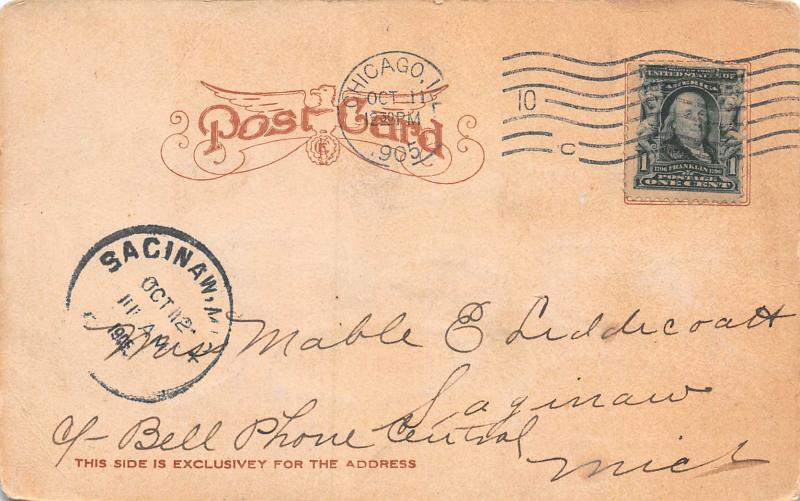 Post Card
CHICAGO, ILL
OCT 11
12:30 PM
1905
10
C
SERIES 1902
UNITED STATES OF
AMERICA
1 1706 FRANKLIN 1790 1
POSTAGE
ONE CENT
SAGINAW, M
OCT 12
AM
1905
Miss Mable E Liddecoatt
Saginaw
c/- Bell Phone Central
Mich
THIS SIDE IS EXCLUSIVEY FOR THE ADDRESS